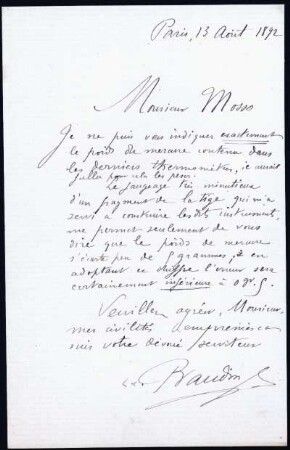 Paris, 13 Août 1892
Monsieur Mosso
Je ne puis vous indiquer exactement
le poids de mercure contenu dans
les derniers thermomètres, il aurait
fallu pour cela les peser.
Le jaugeage très minutieux
d'un fragment de la tige qui m'a
servi à construire les dits instruments,
me permet seulement de vous
dire que le poids de mercure
s'écarte peu de 5 grammes, en
adoptant ce chiffre l'erreur sera
certainement inférieure à 0gr.5.
Veuillez agréer, Monsieur,
mes civilités empressées
suis votre dévoué serviteur
Baudin